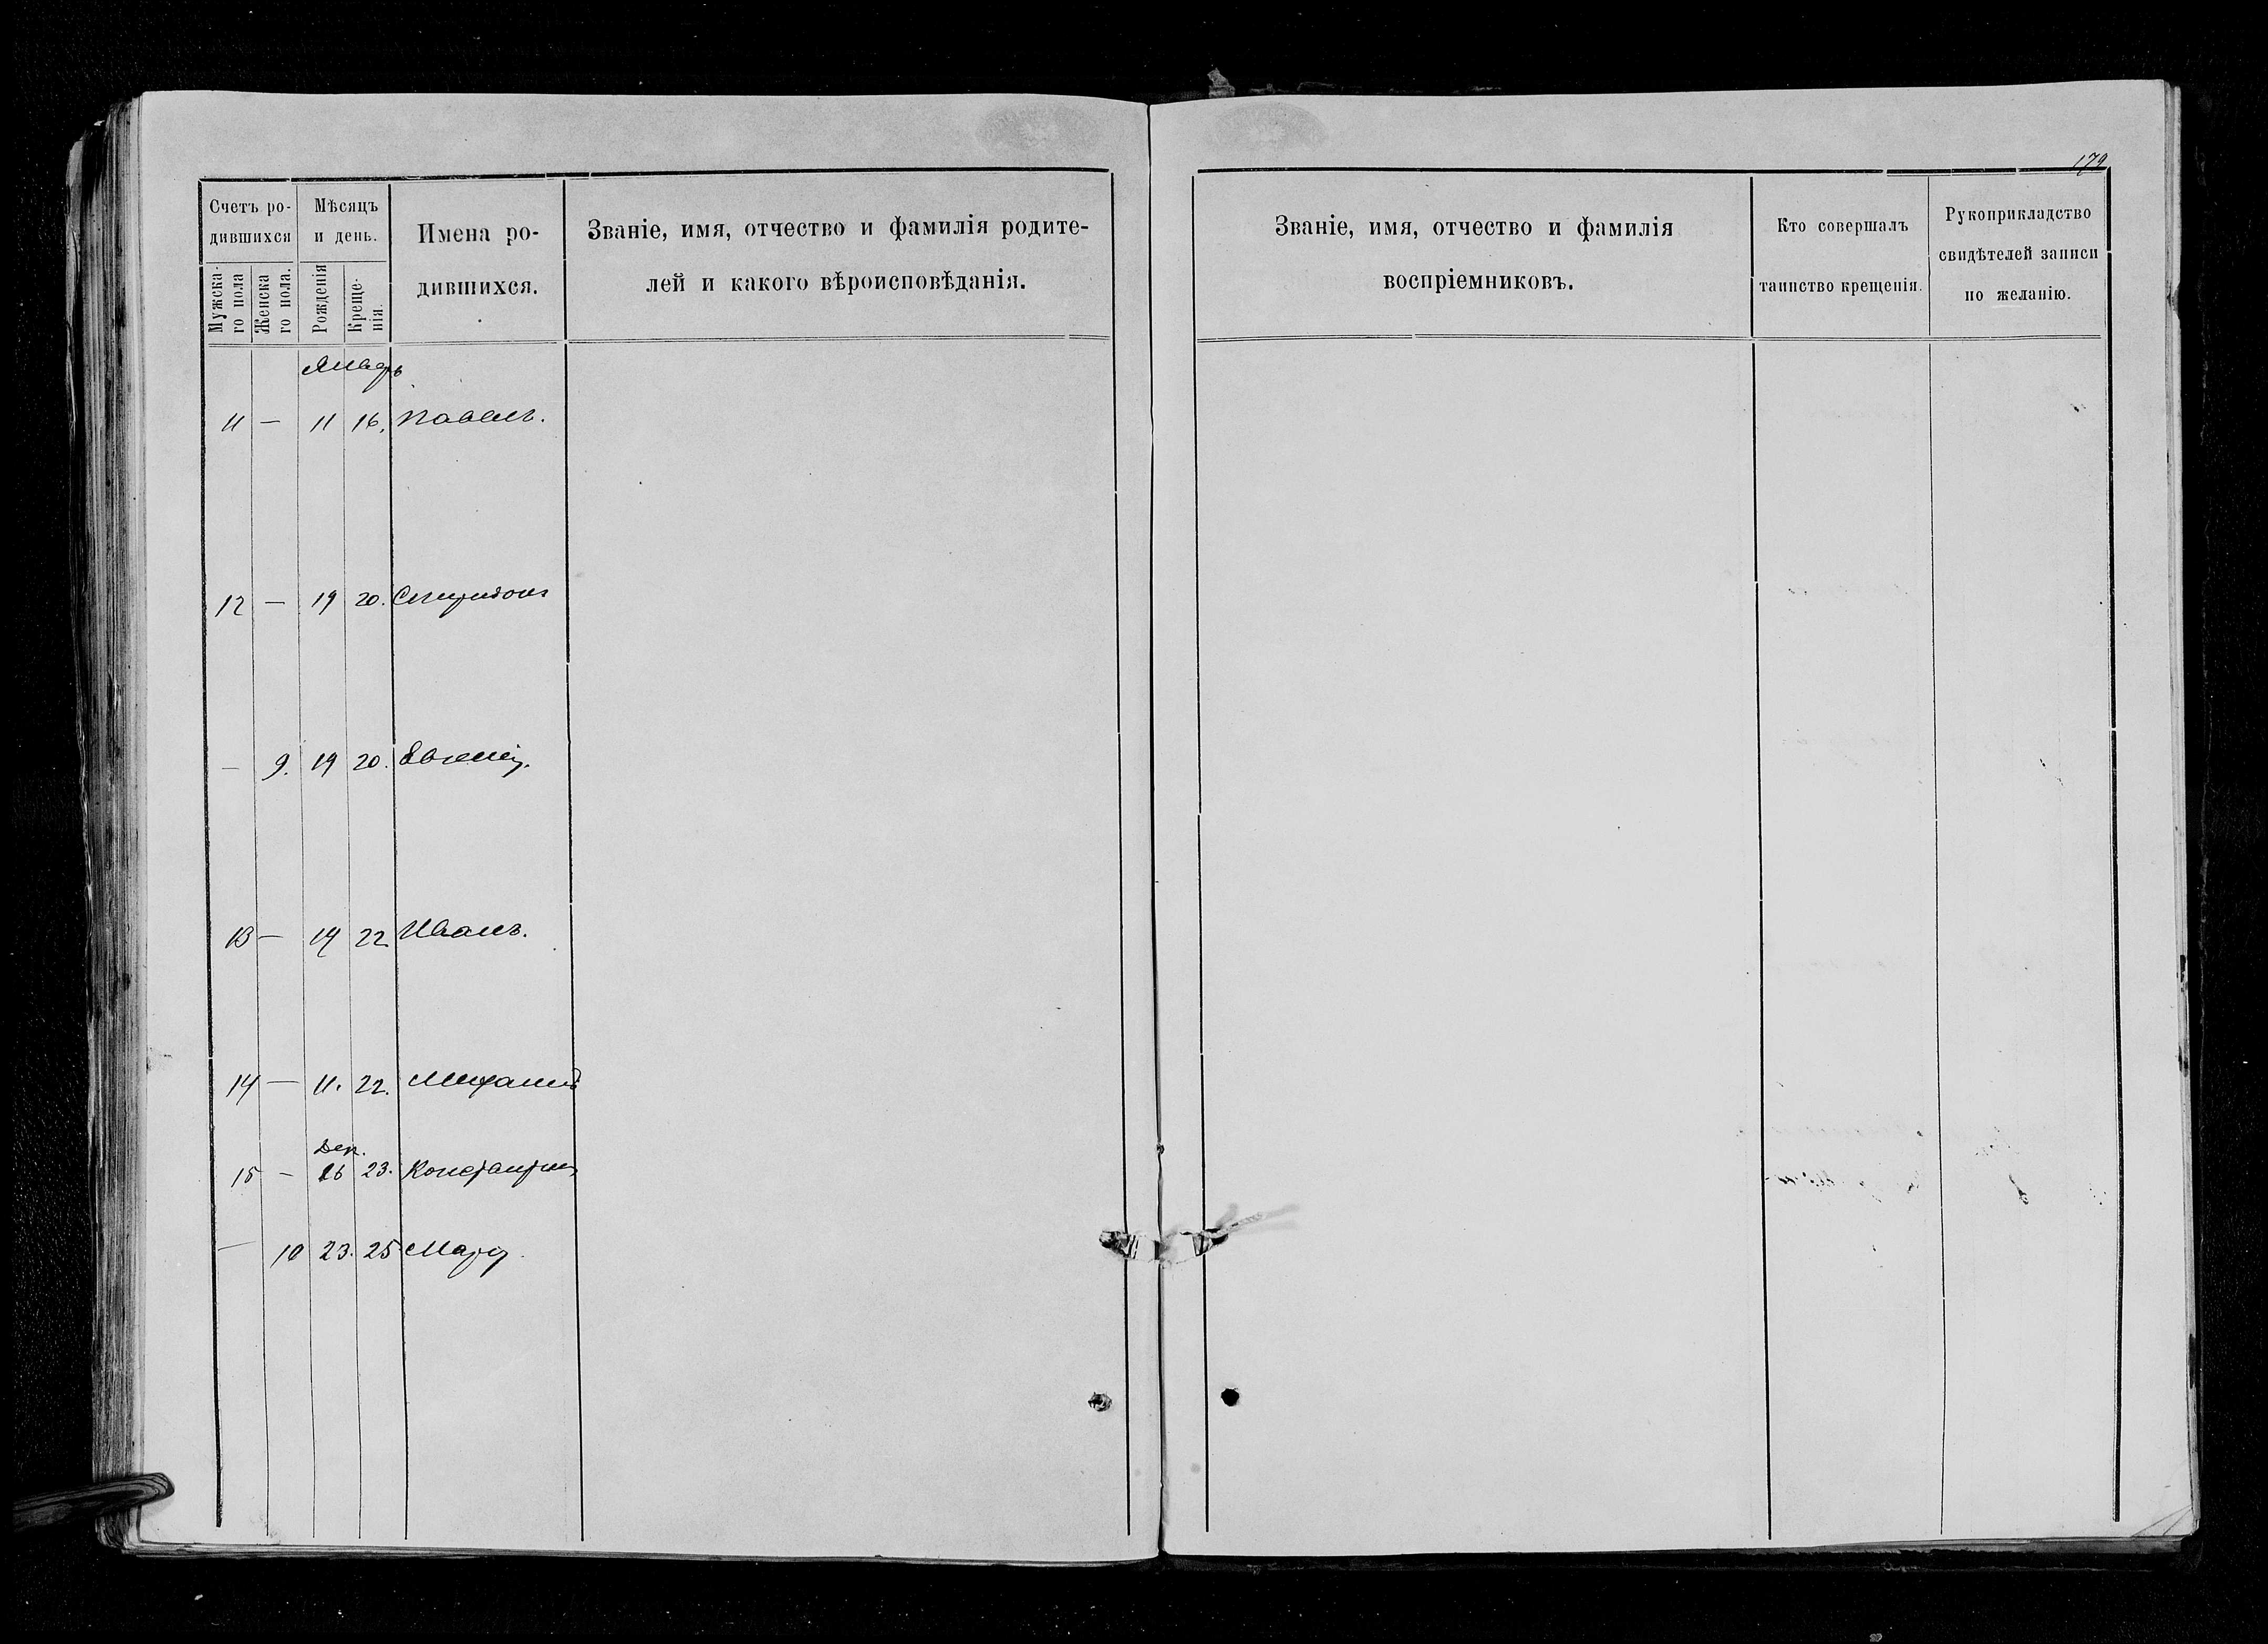 179
Счетъ ро-
дившихся
Мѣсяцъ
и день.
Имена ро-
дившихся.
Званіе, имя, отчество и фамилія родите-
лей и какого вѣроисповѣданія.
Званіе, имя, отчество и фамилія
воспріемниковъ.
Кто совершалъ
таинство крещенія.
Рукоприкладство
свидѣтелей записи
по желанію.
Мужска-
го пола
Женска
го пола.
Рожденія
Креще-
нія.
Январь
11 — 11 16. Павелъ.
12 — 19 20. Спиридонъ
— 9. 19 20. Евгенія.
13 — 19 22 Иванъ.
14 — 11. 22. Михаилъ
Дек.
15 — 26 23. Константинъ
— 10 23. 25 Марія.